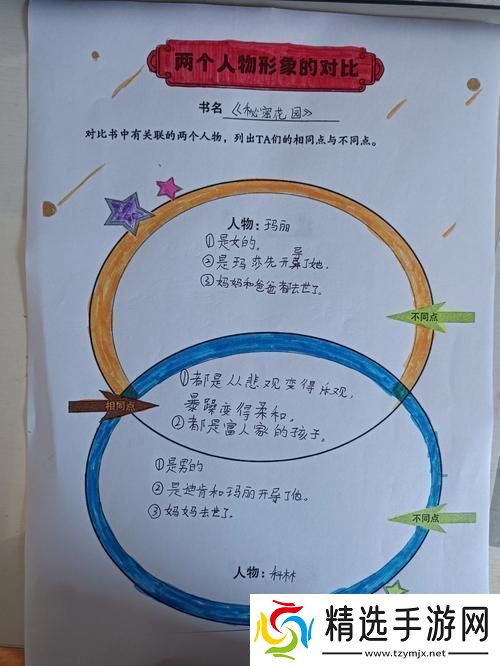 两个人物形象的对比
书名 《秘密花园》
对比书中有关联的两个人物，列出TA们的相同点与不同点。
人物：玛丽
①是女的。
②是玛莎先开导了她.
③妈妈和爸爸都去世了。
不同点
①都是从悲观变得乐观，
暴躁变得柔和。
相同点
②都是富人家的孩子。
①是男的
②是迪肯和玛丽开导了他。
③妈妈去世了.
不同点
人物：科林
精选手游网
www.tzymjx.net